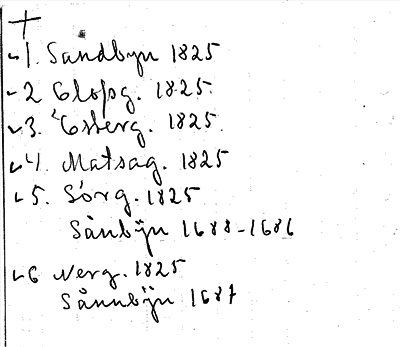 +
1. Sandbyn 1825
2 Olofsg. 1825.
3. Esberg. 1825.
4. Matsag. 1825
5. Sörg. 1825
Sånbÿn 1688-1686
6 Nerg. 1825
Sånnbÿn 1687